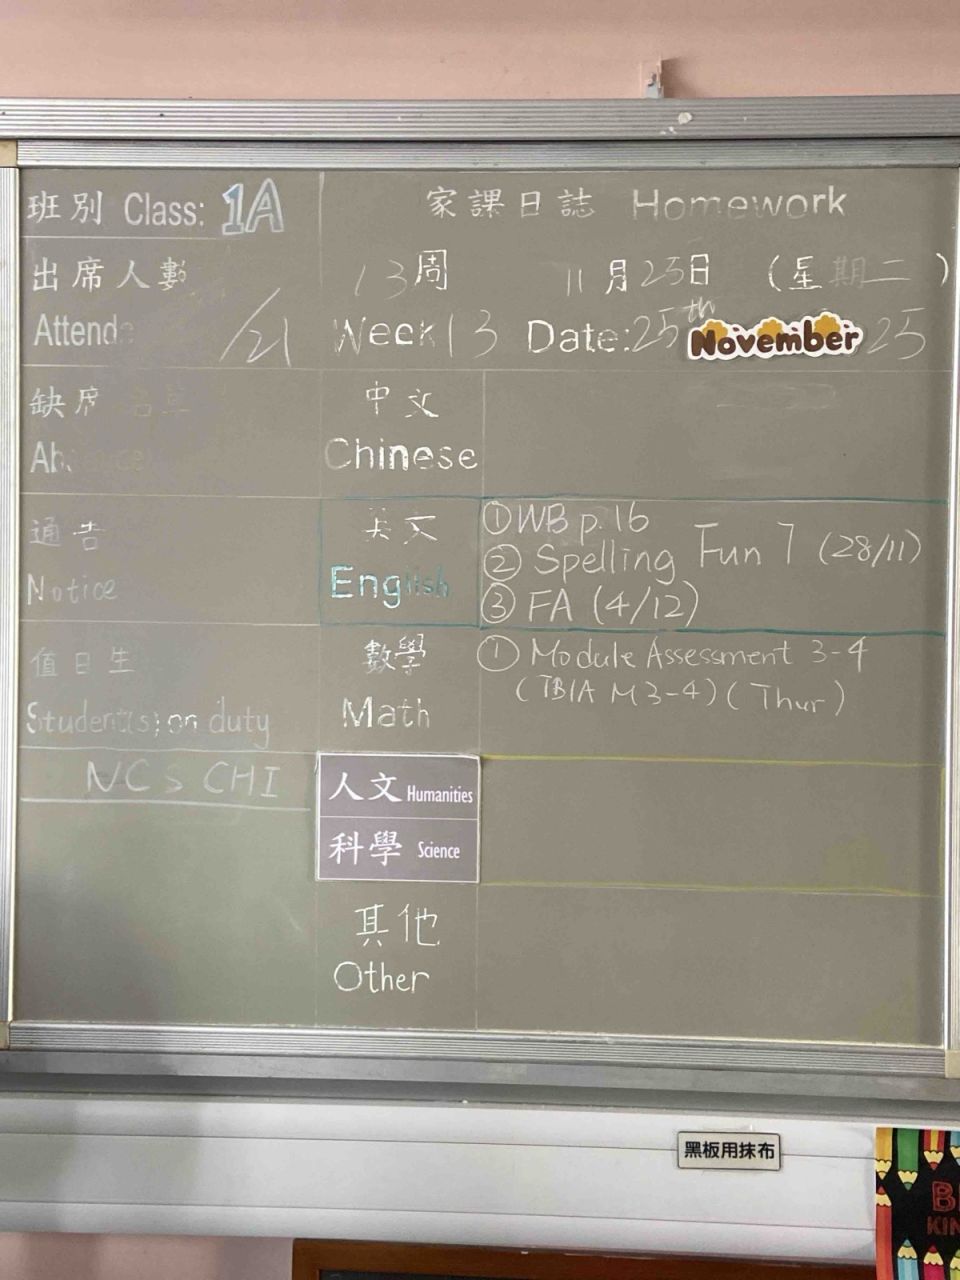 班別 Class: 1A
家課日誌 Homework
出席人數
13周 11月25日 (星期二)
Attend /21
Week 13 Date: 25th November 25
缺席名單
中文
Absence
Chinese
通告
英文
① WB p.16
② Spelling Fun 7 (28/11)
Notice
English
③ FA (4/12)
值日生
數學
① Module Assessment 3-4
(TBIA M3-4) (Thur)
Student(s) on duty
Math
NCS CHI
人文 Humanities
科學 Science
其他
Other
黑板用抹布